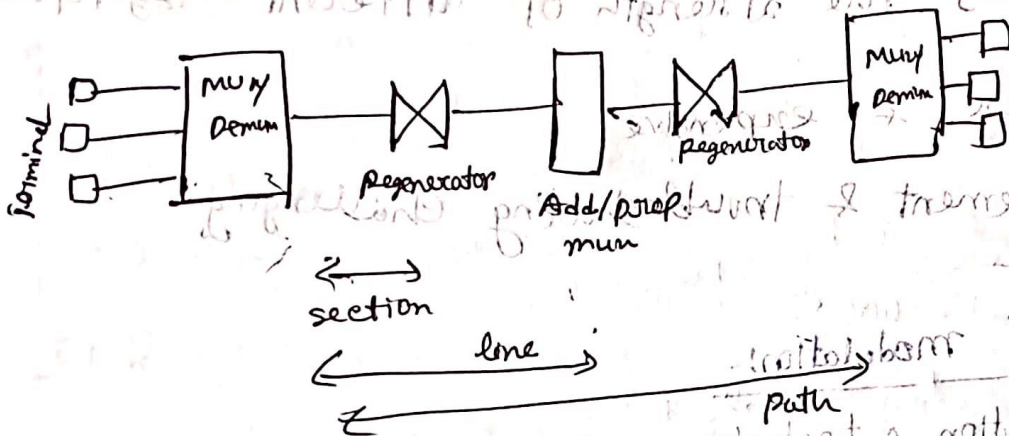 Terminal
MUX/
Demux
Regenerator
Add/Drop
mux
Regenerator
MUX/
Demux
section
line
path